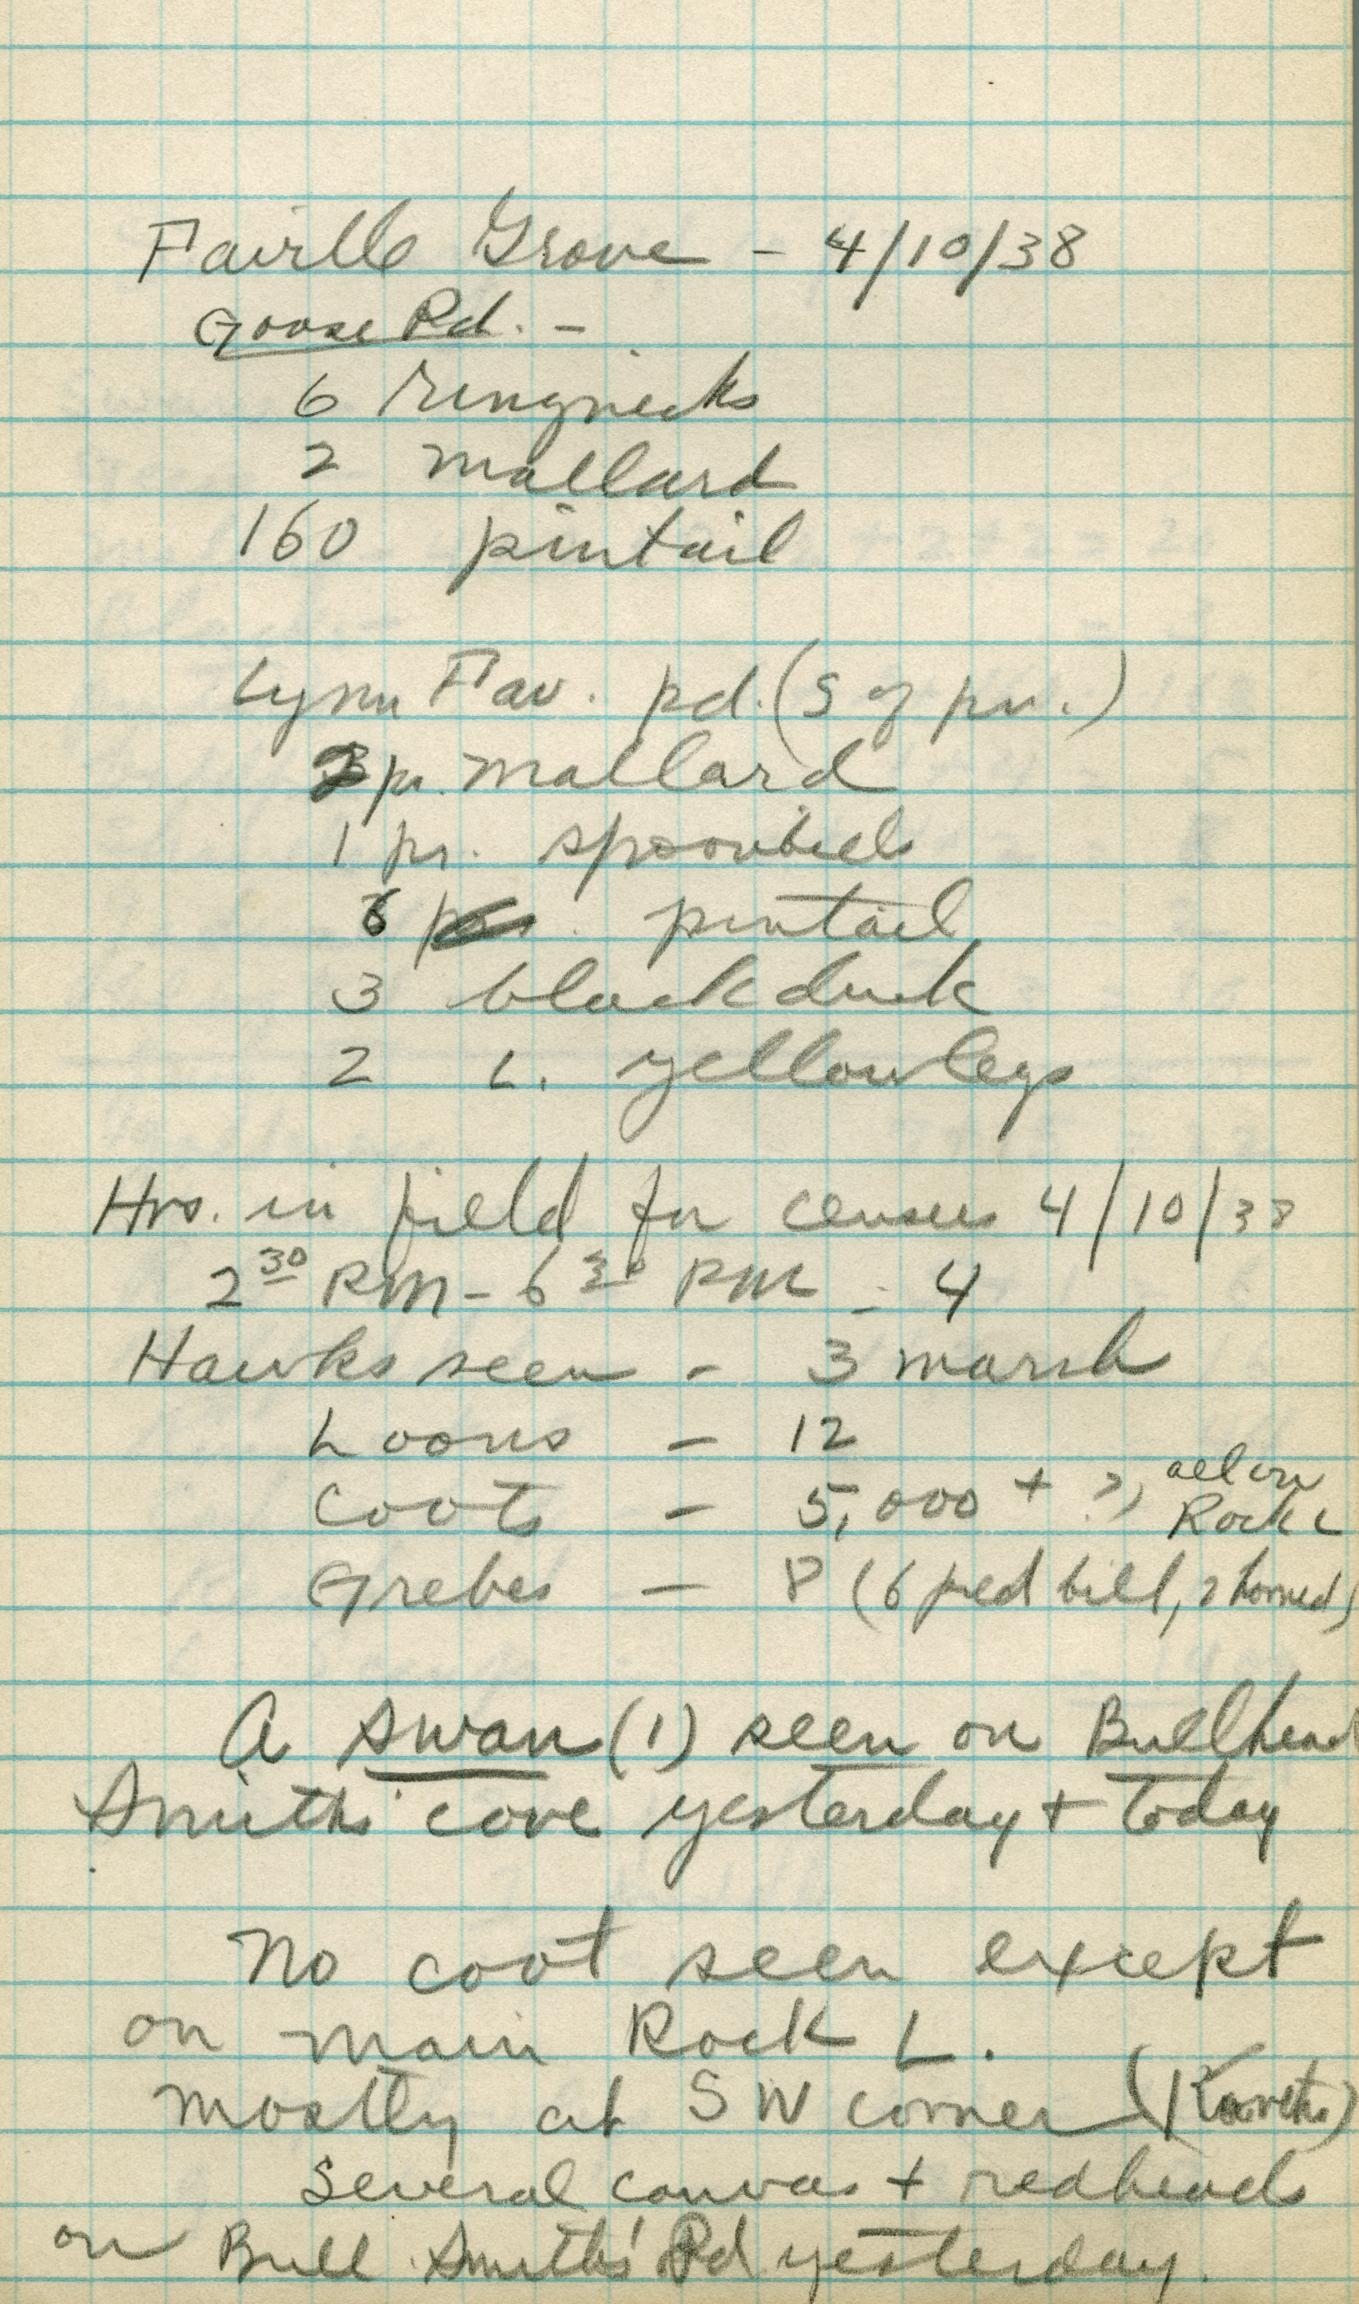 Fairlle Grove - 4/10/38
Goose Pd. -
6 ringnecks
2 mallard
160 pintail
Lynn Fav. pd. (S of pv.)
pr. mallard
1 pr. spoonbill
pintail
3 black duck
2 L. yellowlegs
Hrs. in field for census 4/10/38
2 30 PM - 6 30 PM - 4
Hawks seen - 3 marsh
Loons - 12
Coots - 5,000 + ?, all on Rock L
Grebes - 8 (6 pied bill, 2 horned)
A swan (1) seen on Bullhead
Smiths' cove yesterday + today
No coot seen except
on main Rock L.
mostly at SW corner
Several canvas + redheads
on Bull Smiths' Pd yesterday.